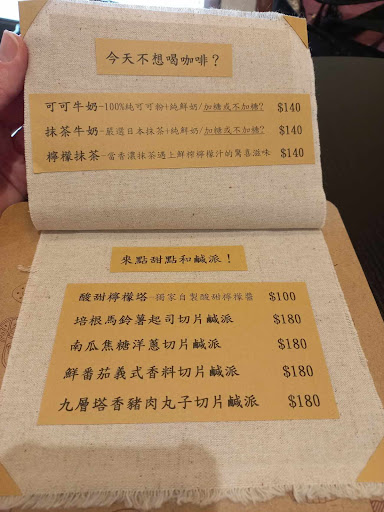 今天不想喝咖啡？
可可牛奶-100%純可可粉+純鮮奶/加糖或不加糖? $140
抹茶牛奶-嚴選日本抹茶+純鮮奶/加糖或不加糖? $140
檸檬抹茶-當香濃抹茶遇上鮮榨檸檬汁的驚喜滋味 $140
來點甜點和鹹派！
酸甜檸檬塔-獨家自製酸甜檸檬醬 $100
培根馬鈴薯起司切片鹹派 $180
南瓜焦糖洋蔥切片鹹派 $180
鮮番茄義式香料切片鹹派 $180
九層塔香豬肉丸子切片鹹派 $180